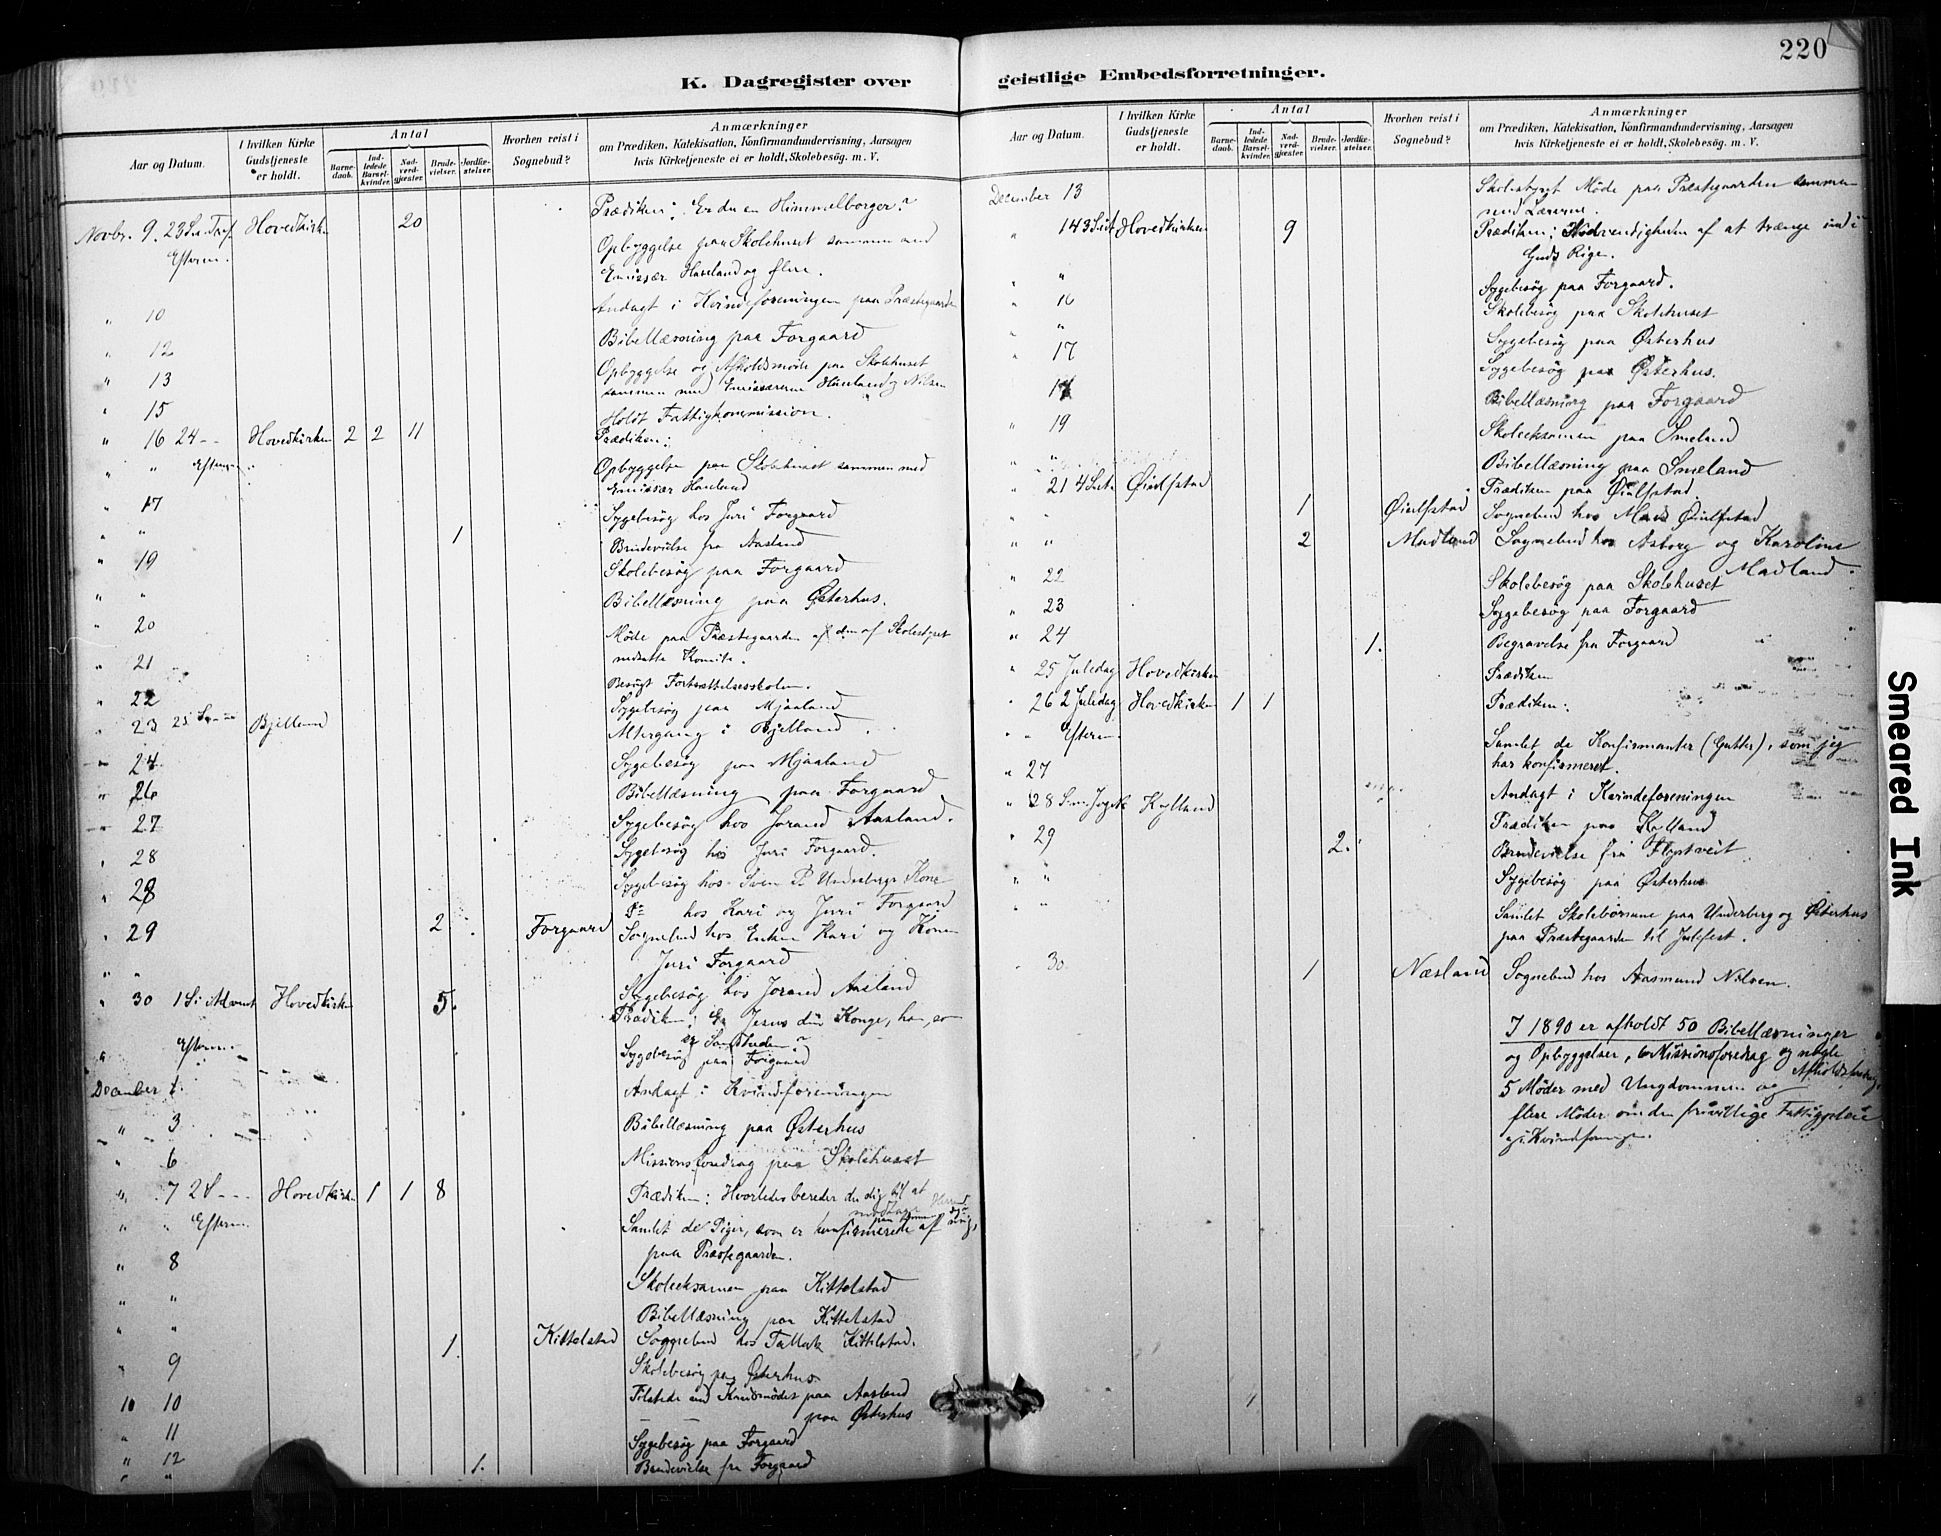 220
K. Dagregister over geistlige Embedsforretninger.
Aar og Datum.
I hvilken Kirke Gudstjeneste er holdt.
Antal
Barnedaab.
Indledede Barselkvinder.
Nadverdgjæster.
Brudevielser.
Jordfæstelser.
Hvorhen reist i Sognebud?
Anmærkninger
om Prædiken, Katekisation, Konfirmandundervisning, Aarsagen
hvis Kirketjeneste ei er holdt, Skolebesøg. m. V.
Novbr. 9. 23 S. e. Tref. Hovedkirken 20 Prædiken: Er du en Himmelborger?
Efterm. Opbyggelse paa Skolehuset sammen med
Emissær Haaland og flere.
" 10 Andagt i Kvindeforeningen paa Præstegaarden
" 12 Bibellæsning paa Forgaard
" 13 Opbyggelse og Afholdsmøde paa Skolehuset
sammen med Emissærerne Haaland og Nilsen
" 15 Holdt Fattigkommission.
" 16 24 - - Hovedkirken 2 2 11 Prædiken:
" " Efterm. Opbyggelse paa Skolehuset sammen med
Emissær Haaland
" 17 Sygebesøg hos Juri Forgaard
" " 1 Brudevielse fra Aasland
" 19 Skolebesøg paa Forgaard
" " Bibellæsning paa Østerhus.
" 20 Møde paa Præstegaarden af den af Skolestyret
nedsatte Komite.
" 21 Besøgt Fortsættelsesskolen.
" 22 Sygebesøg paa Mjaaland
" 23 25 S. - - Bjelland Altergang i Bjelland
" 24 Sygebesøg paa Mjaaland
" 26 Bibellæsning paa Forgaard
" 27 Sygebesøg hos Jorand Aasland.
" 28 Sygebesøg hos Juri Forgaard.
" 28 Sygebesøg hos Sven P. Underbergs Kone
Do hos Kari og Juri Forgaard
" 29 2 Forgaard Sognebud hos Enken Kari og Konen
Juri Forgaard
" " Sygebesøg hos Jorand Aasland
" 30 1 S. i Advent Hovedkirken 5. Prædiken: Er Jesus din Konge, han, som
er Sandheden?
" Efterm. Sygebesøg paa Forgaard
December 1. Andagt i Kvindeforeningen
" 3 Bibellæsning paa Østerhus
" 6 Missionsforedrag paa Skolehuset
" 7 2 S - - - Hovedkirken 1 1 8 Prædiken: Hvorledes bereder du dig til at
modtage Herren
" " Efterm. Samlet de Piger, som er konfirmerede af mig,
paa Præstegaarden.
" 8 Skoleeksamen paa Kittelstad
" " Bibellæsning paa Kittelstad
" " 1. Kittelstad Sognebud hos Tallak Kittelstad.
" 9 Skolebesøg paa Østerhus
" 10 Tilstede ved Kredsmødet paa Aasland
— — paa Østerhus
" 11 Sygebesøg paa Forgaard
" 12 1. Brudevielse fra Forgaard
Aar og Datum.
I hvilken Kirke Gudstjeneste er holdt.
Antal
Barnedaab.
Indledede Barselkvinder.
Nadverdgjæster.
Brudevielser.
Jordfæstelser.
Hvorhen reist i Sognebud?
Anmærkninger
om Prædiken, Katekisation, Konfirmandundervisning, Aarsagen
hvis Kirketjeneste ei er holdt, Skolebesøg. m. V.
December 13 Skolestyret Møde paa Præstegaarden sammen
med Lærerne.
" 14 3 S i A Hovedkirken 9 Prædiken: Nødvendigheden af at trænge ind i
Guds Rige.
" " Sygebesøg paa Forgaard.
" 16 Skolebesøg paa Skolehuset
" " Sygebesøg paa Østerhus
" 17 Sygebesøg paa Østerhus.
Bibellæsning paa Forgaard
" 19 Skoleeksamen paa Smeland
" " Bibellæsning paa Smeland
" 21 4 S i A Øiulfstad Prædiken paa Øiulfstad
" " 1 Øiulfstad Sognebud hos Mads Øiulfstad
" " 2 Madland Sognebud hos Asborg og Karoline
Madland.
" 22 Skolebesøg paa Skolehuset
" 23 Sygebesøg paa Forgaard
" 24 1. Begravelse fra Forgaard
" 25 Juledag Hovedkirken Prædiken
" 26 2 Juledag Hovedkirken 1 1 Prædiken:
" " Efterm. Samlet de Konfirmanter (Gutter), som jeg
har konfirmeret.
" 27 Andagt i Kvindeforeningen
" 28 S. m. Jul og Nytaar Kylland Prædiken paa Kylland
" 29 2. Brudevielse fra Flystveit
" " Sygebesøg paa Østerhus
" " Samlet Skolebørnene paa Underberg og Østerhus
paa Præstegaarden til Julefest.
" 30. 1 Næsland Sognebud hos Aasmund Nilsen.
I 1890 er afholdt 50 Bibellæsninger
og Opbyggelser, 6 Missionsforedrag og nogle
Afholdsforedrag,
5 Møder med Ungdommen og
flere Møder om den frivillige Fattigpleie
og i Kvindeforeningen.
Smeared Ink